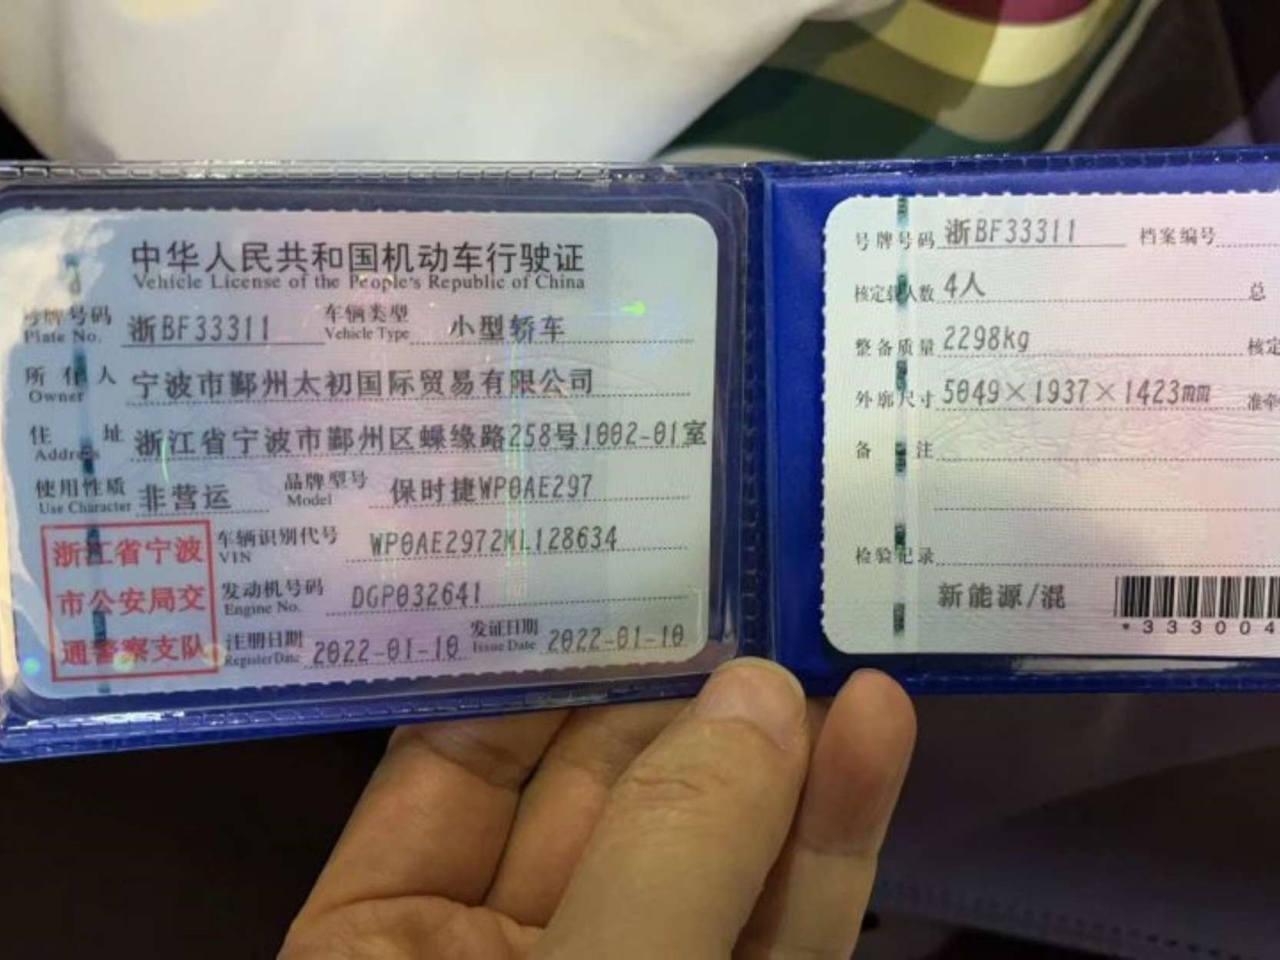 中华人民共和国机动车行驶证
Vehicle License of the People's Republic of China
号牌号码 浙BF33311 车辆类型 小型轿车
Plate No. Vehicle Type
所有人 宁波市鄞州太初国际贸易有限公司
Owner
住址 浙江省宁波市鄞州区蝶缘路258号1002-01室
Address
使用性质 非营运 品牌型号 保时捷WP0AE297
Use Character Model
浙江省宁波
市公安局交
通警察支队
车辆识别代号 WP0AE2972ML128634
VIN
发动机号码 DGP032641
Engine No.
注册日期 2022-01-10 发证日期 2022-01-10
Register Date Issue Date
号牌号码 浙BF33311 档案编号
核定载人数 4人 总
整备质量 2298kg 核定
外廓尺寸 5049×1937×1423mm 准牵
备注
检验记录
新能源/混
*333004